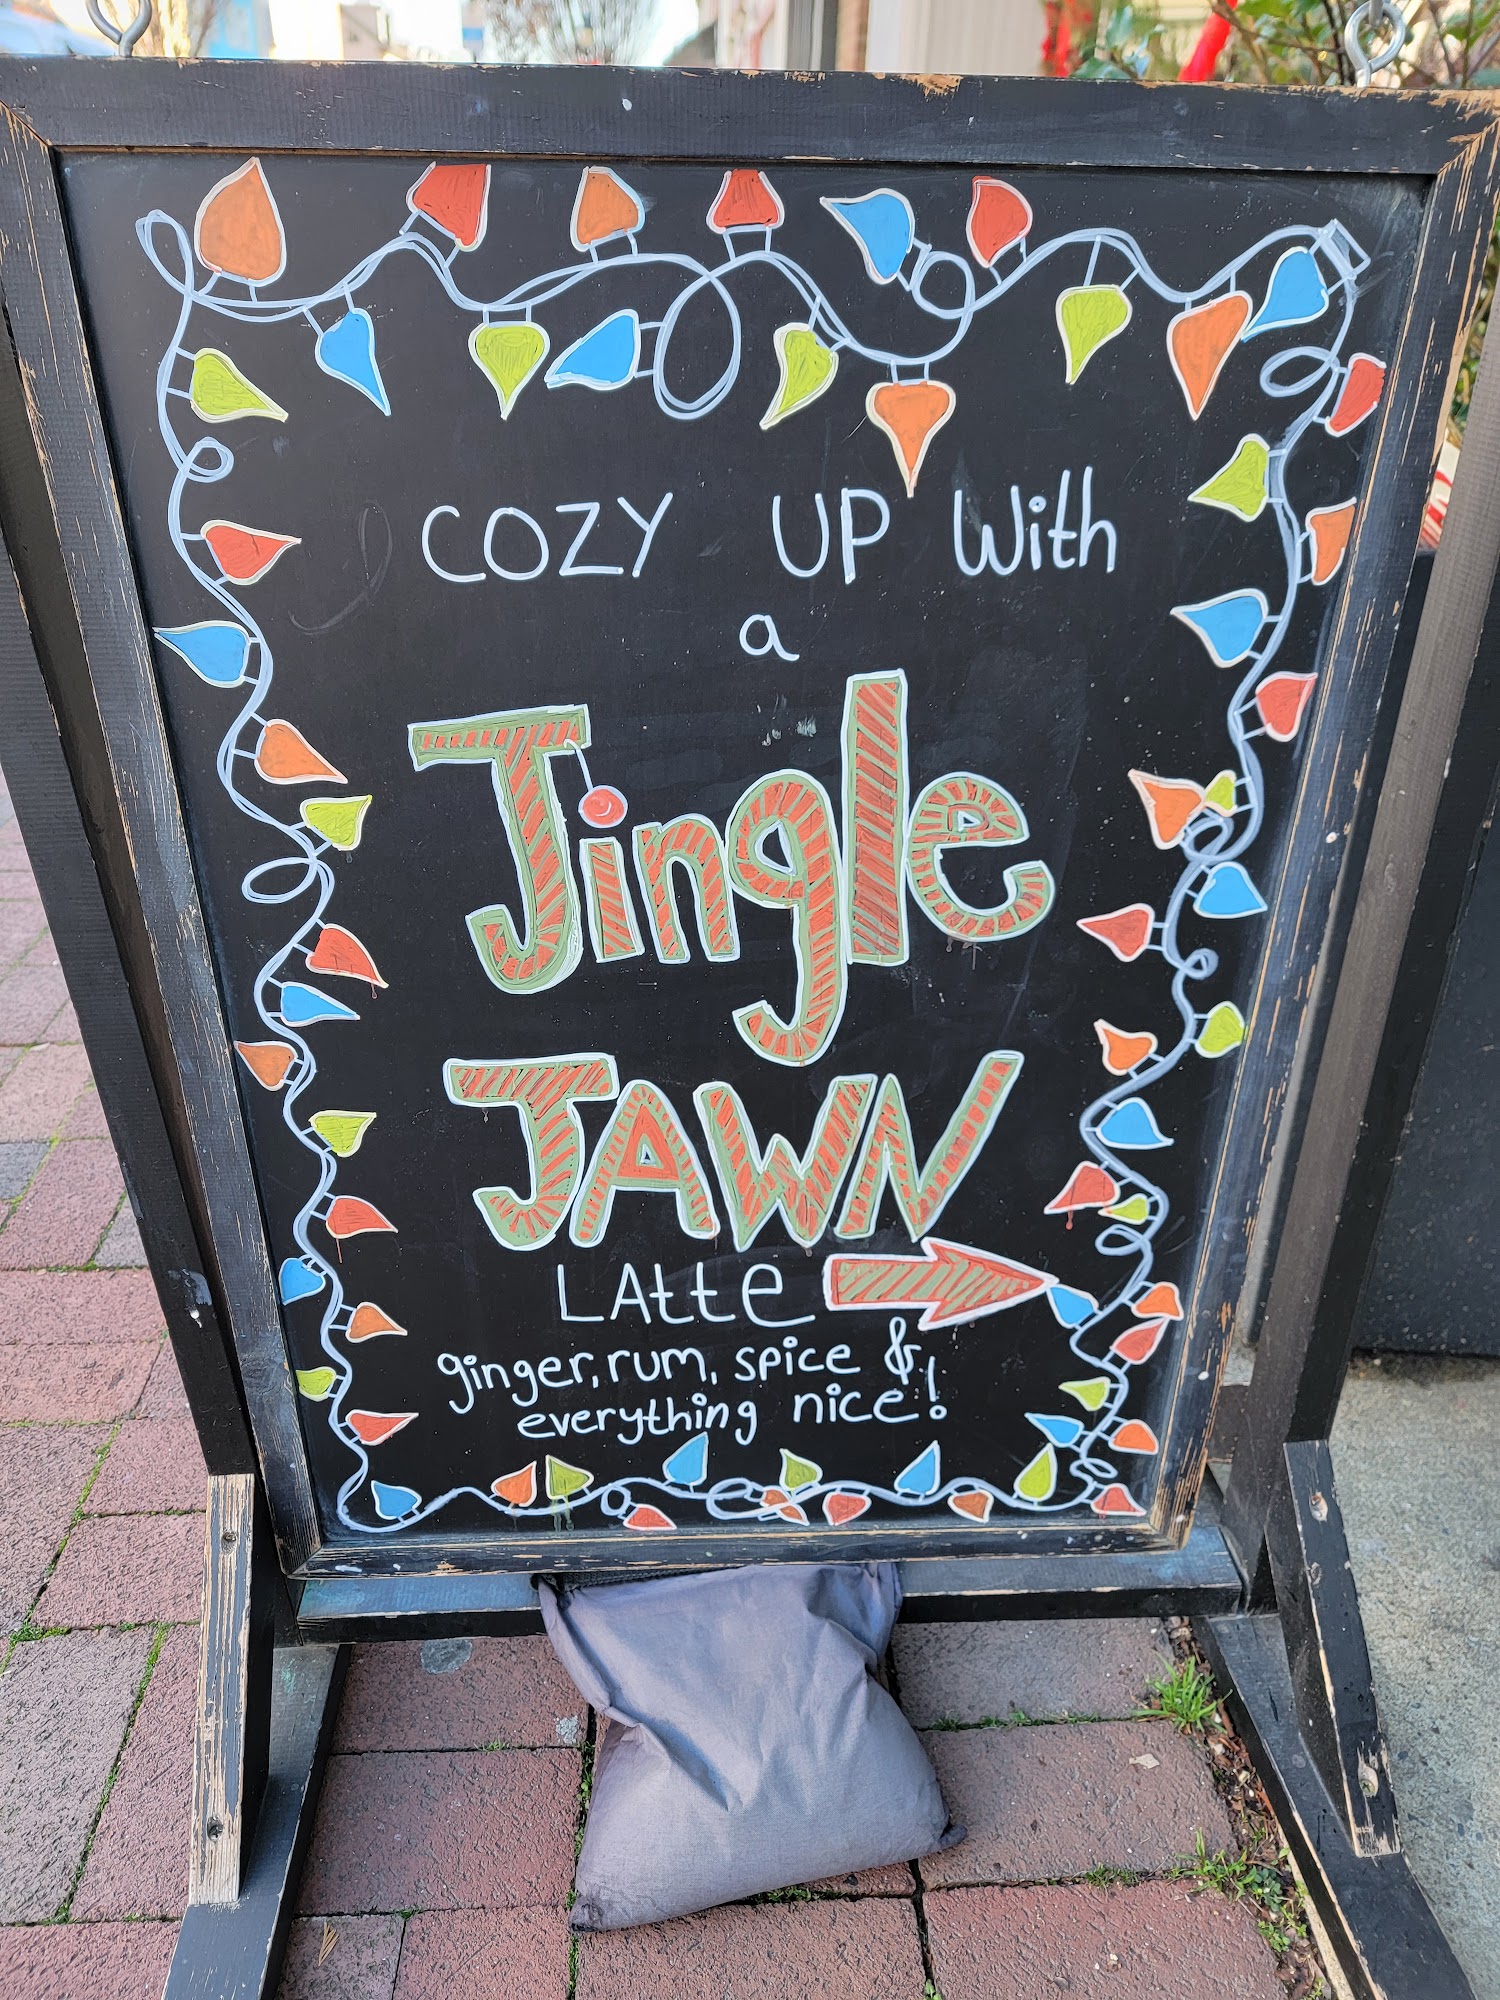 COZY UP With
a
Jingle
JAWN
LAtte
ginger, rum, spice &
everything nice!